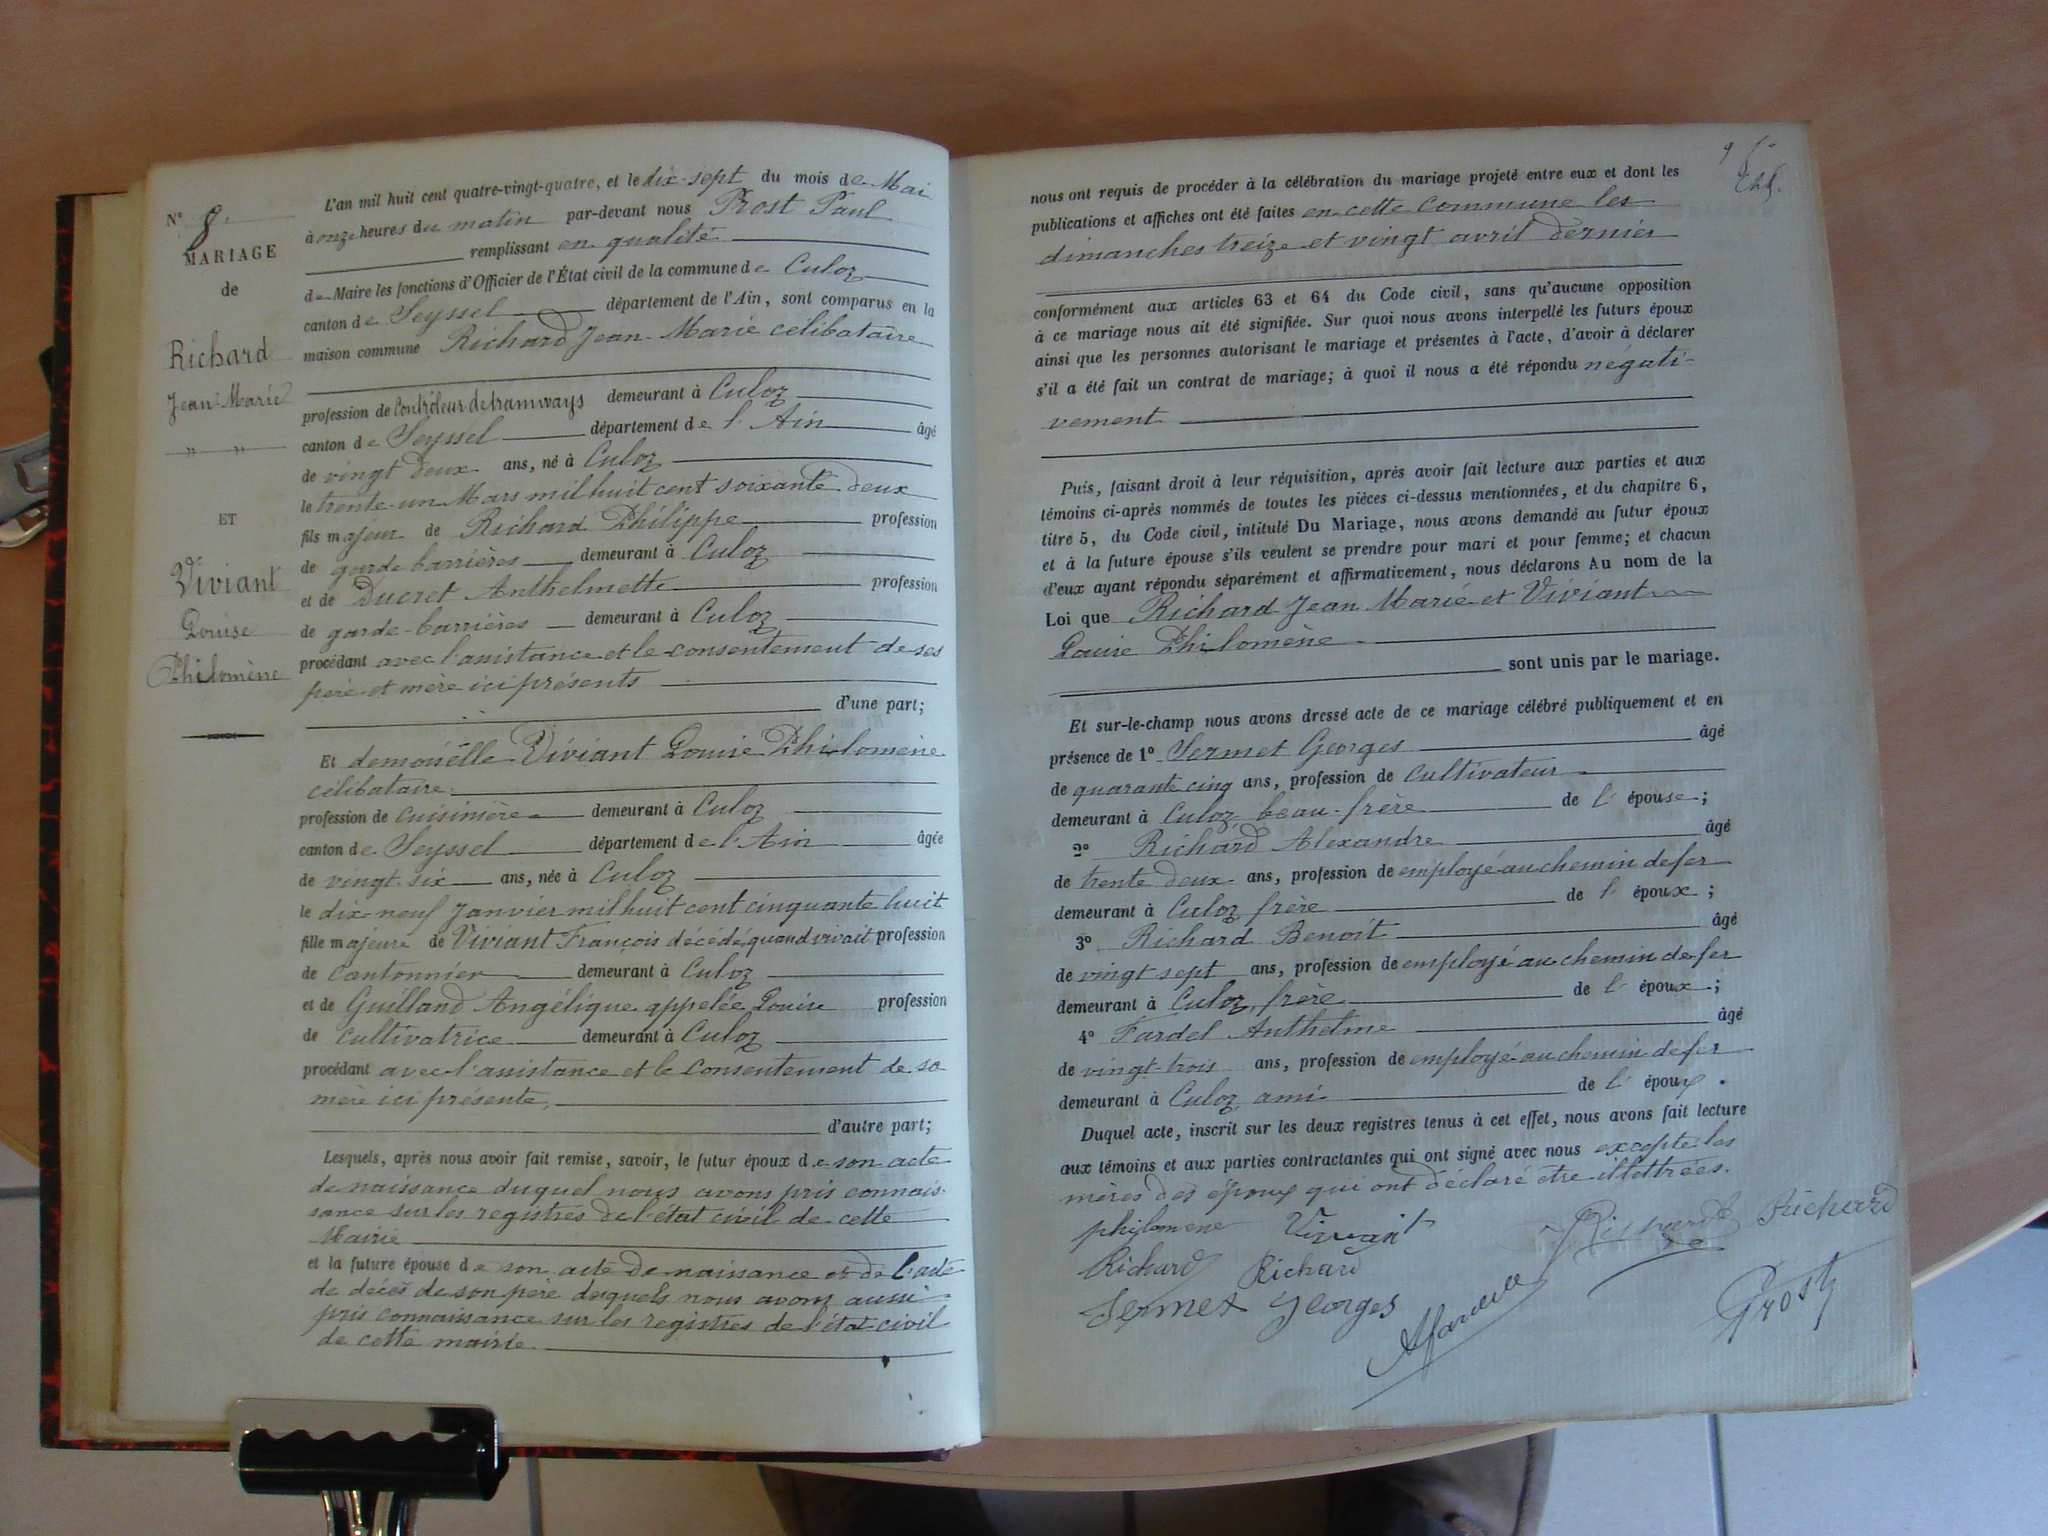 N° 8.
MARIAGE
de
Richard
Jean-Marie
" "
ET
Viviant
Louise
Philomène
L'an mil huit cent quatre-vingt-quatre, et le dix-sept du mois de Mai
à onze heures du matin par-devant nous Prost Paul
remplissant en qualité
de Maire les fonctions d'Officier de l'État civil de la commune de Culoz
canton de Seyssel département de l'Ain, sont comparus en la
maison commune Richard Jean-Marie célibataire
profession de Contrôleur de tramways demeurant à Culoz
canton de Seyssel département de l'Ain âgé
de vingt deux ans, né à Culoz
le trente-un Mars mil huit cent soixante deux
fils majeur de Richard Philippe profession
de garde barrières demeurant à Culoz
et de Ducret Anthelmette profession
de garde-barrières demeurant à Culoz
procédant avec l'assistance et le consentement de ses
père et mère ici présents
d'une part;
Et demoiselle Viviant Louise Philomène
célibataire
profession de cuisinière demeurant à Culoz
canton de Seyssel département de l'Ain âgée
de vingt-six ans, née à Culoz
le dix-neuf Janvier mil huit cent cinquante huit
fille majeure de Viviant François décédé, quand vivait profession
de cantonnier demeurant à Culoz
et de Guilland Angélique appelée Louise profession
de cultivatrice demeurant à Culoz
procédant avec l'assistance et le consentement de sa
mère ici présente,
d'autre part;
Lesquels, après nous avoir fait remise, savoir, le futur époux de son acte
de naissance duquel nous avons pris connais-
sance sur les registres de l'état civil de cette
Mairie
et la future épouse de son acte de naissance et de l'acte
de décès de son père desquels nous avons aussi
pris connaissance sur les registres de l'état civil
de cette mairie.
nous ont requis de procéder à la célébration du mariage projeté entre eux et dont les
publications et affiches ont été faites en cette commune les
dimanches treize et vingt avril dernier
conformément aux articles 63 et 64 du Code civil, sans qu'aucune opposition
à ce mariage nous ait été signifiée. Sur quoi nous avons interpellé les futurs époux
ainsi que les personnes autorisant le mariage et présentes à l'acte, d'avoir à déclarer
s'il a été fait un contrat de mariage; à quoi il nous a été répondu négati-
vement
Puis, faisant droit à leur réquisition, après avoir fait lecture aux parties et aux
témoins ci-après nommés de toutes les pièces ci-dessus mentionnées, et du chapitre 6,
titre 5, du Code civil, intitulé Du Mariage, nous avons demandé au futur époux
et à la future épouse s'ils veulent se prendre pour mari et pour femme; et chacun
d'eux ayant répondu séparément et affirmativement, nous déclarons Au nom de la
Loi que Richard Jean Marie et Viviant
Louise Philomène
sont unis par le mariage.
Et sur-le-champ nous avons dressé acte de ce mariage célébré publiquement et en
présence de 1° Sermet Georges âgé
de quarante cinq ans, profession de cultivateur
demeurant à Culoz, beau-frère de l'épouse;
2° Richard Alexandre âgé
de trente deux ans, profession de employé au chemin de fer
demeurant à Culoz, frère de l'époux;
3° Richard Benoit âgé
de vingt sept ans, profession de employé au chemin de fer
demeurant à Culoz, frère de l'époux;
4° Fardel Anthelme âgé
de vingt-trois ans, profession de employé au chemin de fer
demeurant à Culoz, ami de l'époux.
Duquel acte, inscrit sur les deux registres tenus à cet effet, nous avons fait lecture
aux témoins et aux parties contractantes qui ont signé avec nous excepté les
mères des époux qui ont déclaré être illettrées.
philomene Viviant Richard Richard
Richard Richard
Sermet Georges Prost